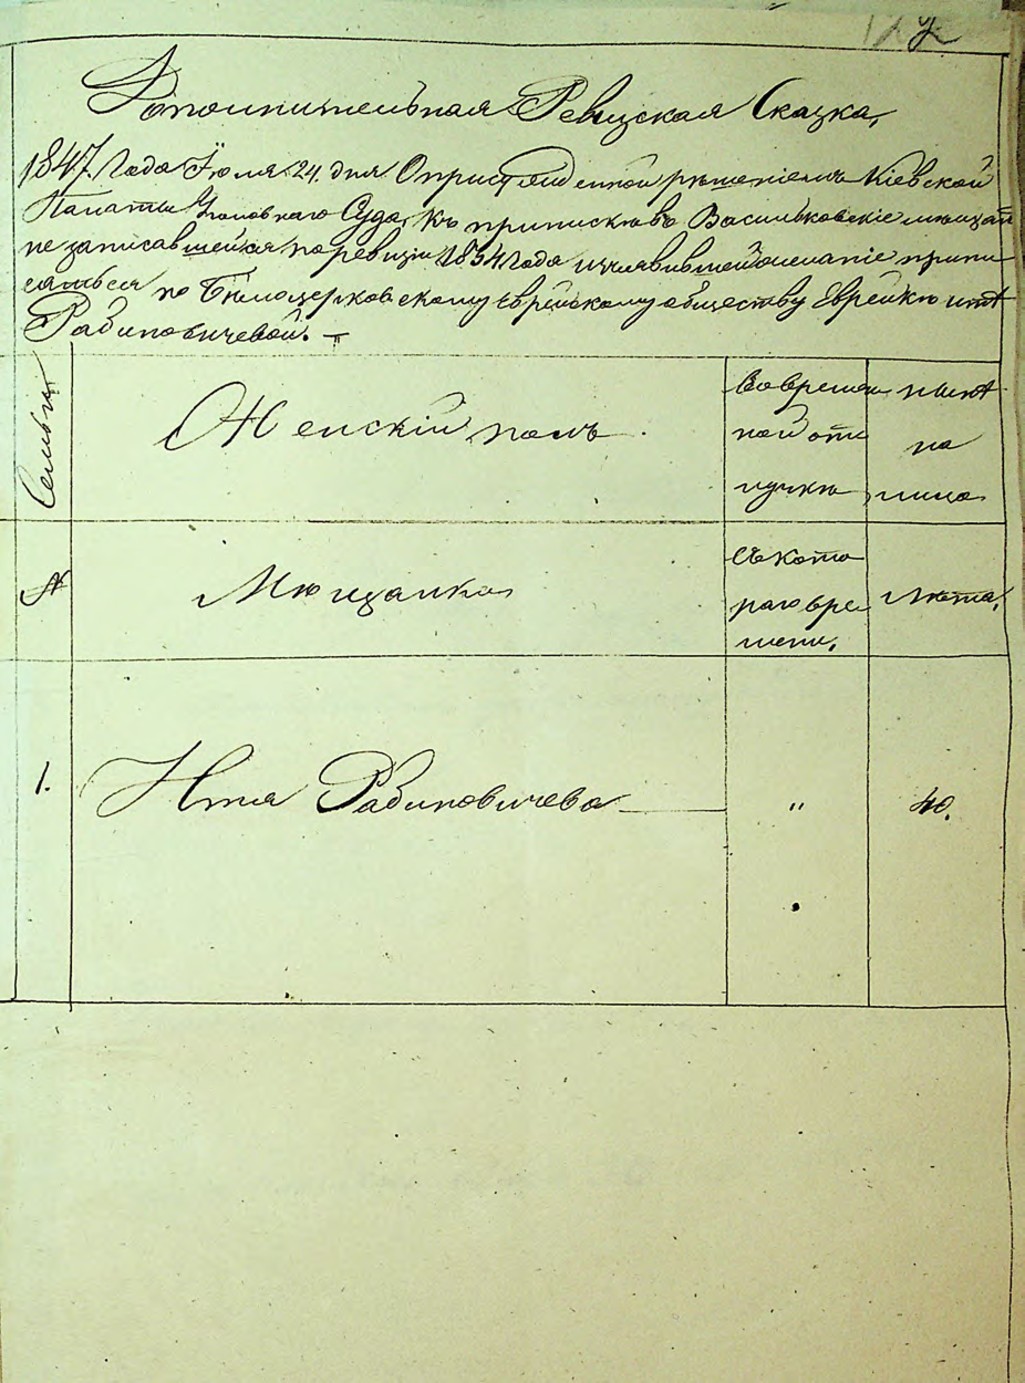 Дополнительная Ревизская Сказка,
1847. Года Іюля 24. дня О присужденной рѣшеніемъ Кіевской
Палаты Уголовнаго Суда, къ припискѣ въ Васильковскіе мѣщан
не записавшейся по ревизіи 1834 года изъявившей желаніе припи
саться по Бѣлоцерковскому Еврейскому обществу Еврейкѣ Итѣ
Рабиновичевой. —
Семьи
Женскій полъ.
Во времен
ной отлу
чкѣ
нынѣ
на
лицо
№
Мѣщанка
Съ кото
раго вре
мени.
Лѣта.
1.
Итя Рабиновичева
"
40.